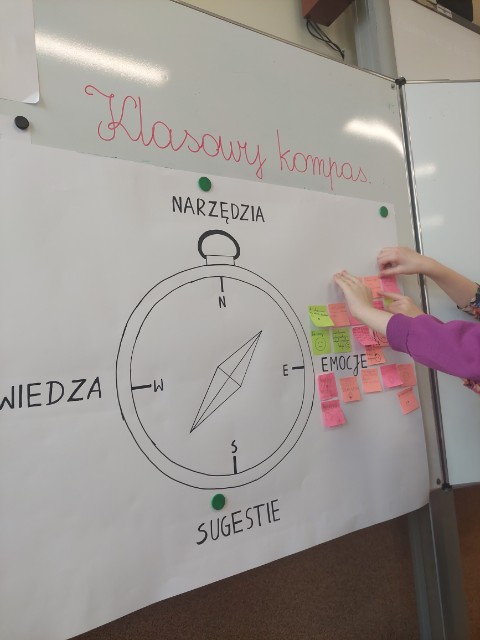 Klasowy kompas.
NARZĘDZIA
N
WIEDZA
W
E
EMOCJE
S
SUGESTIE